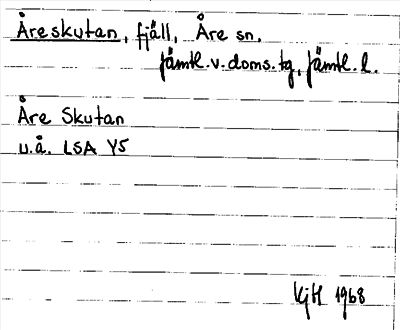 Åreskutan, fjäll, Åre sn.
Jämtl. v. doms. tg, Jämtl. l.
Åre Skutan
u.å. LSA Y5
KjH 1968